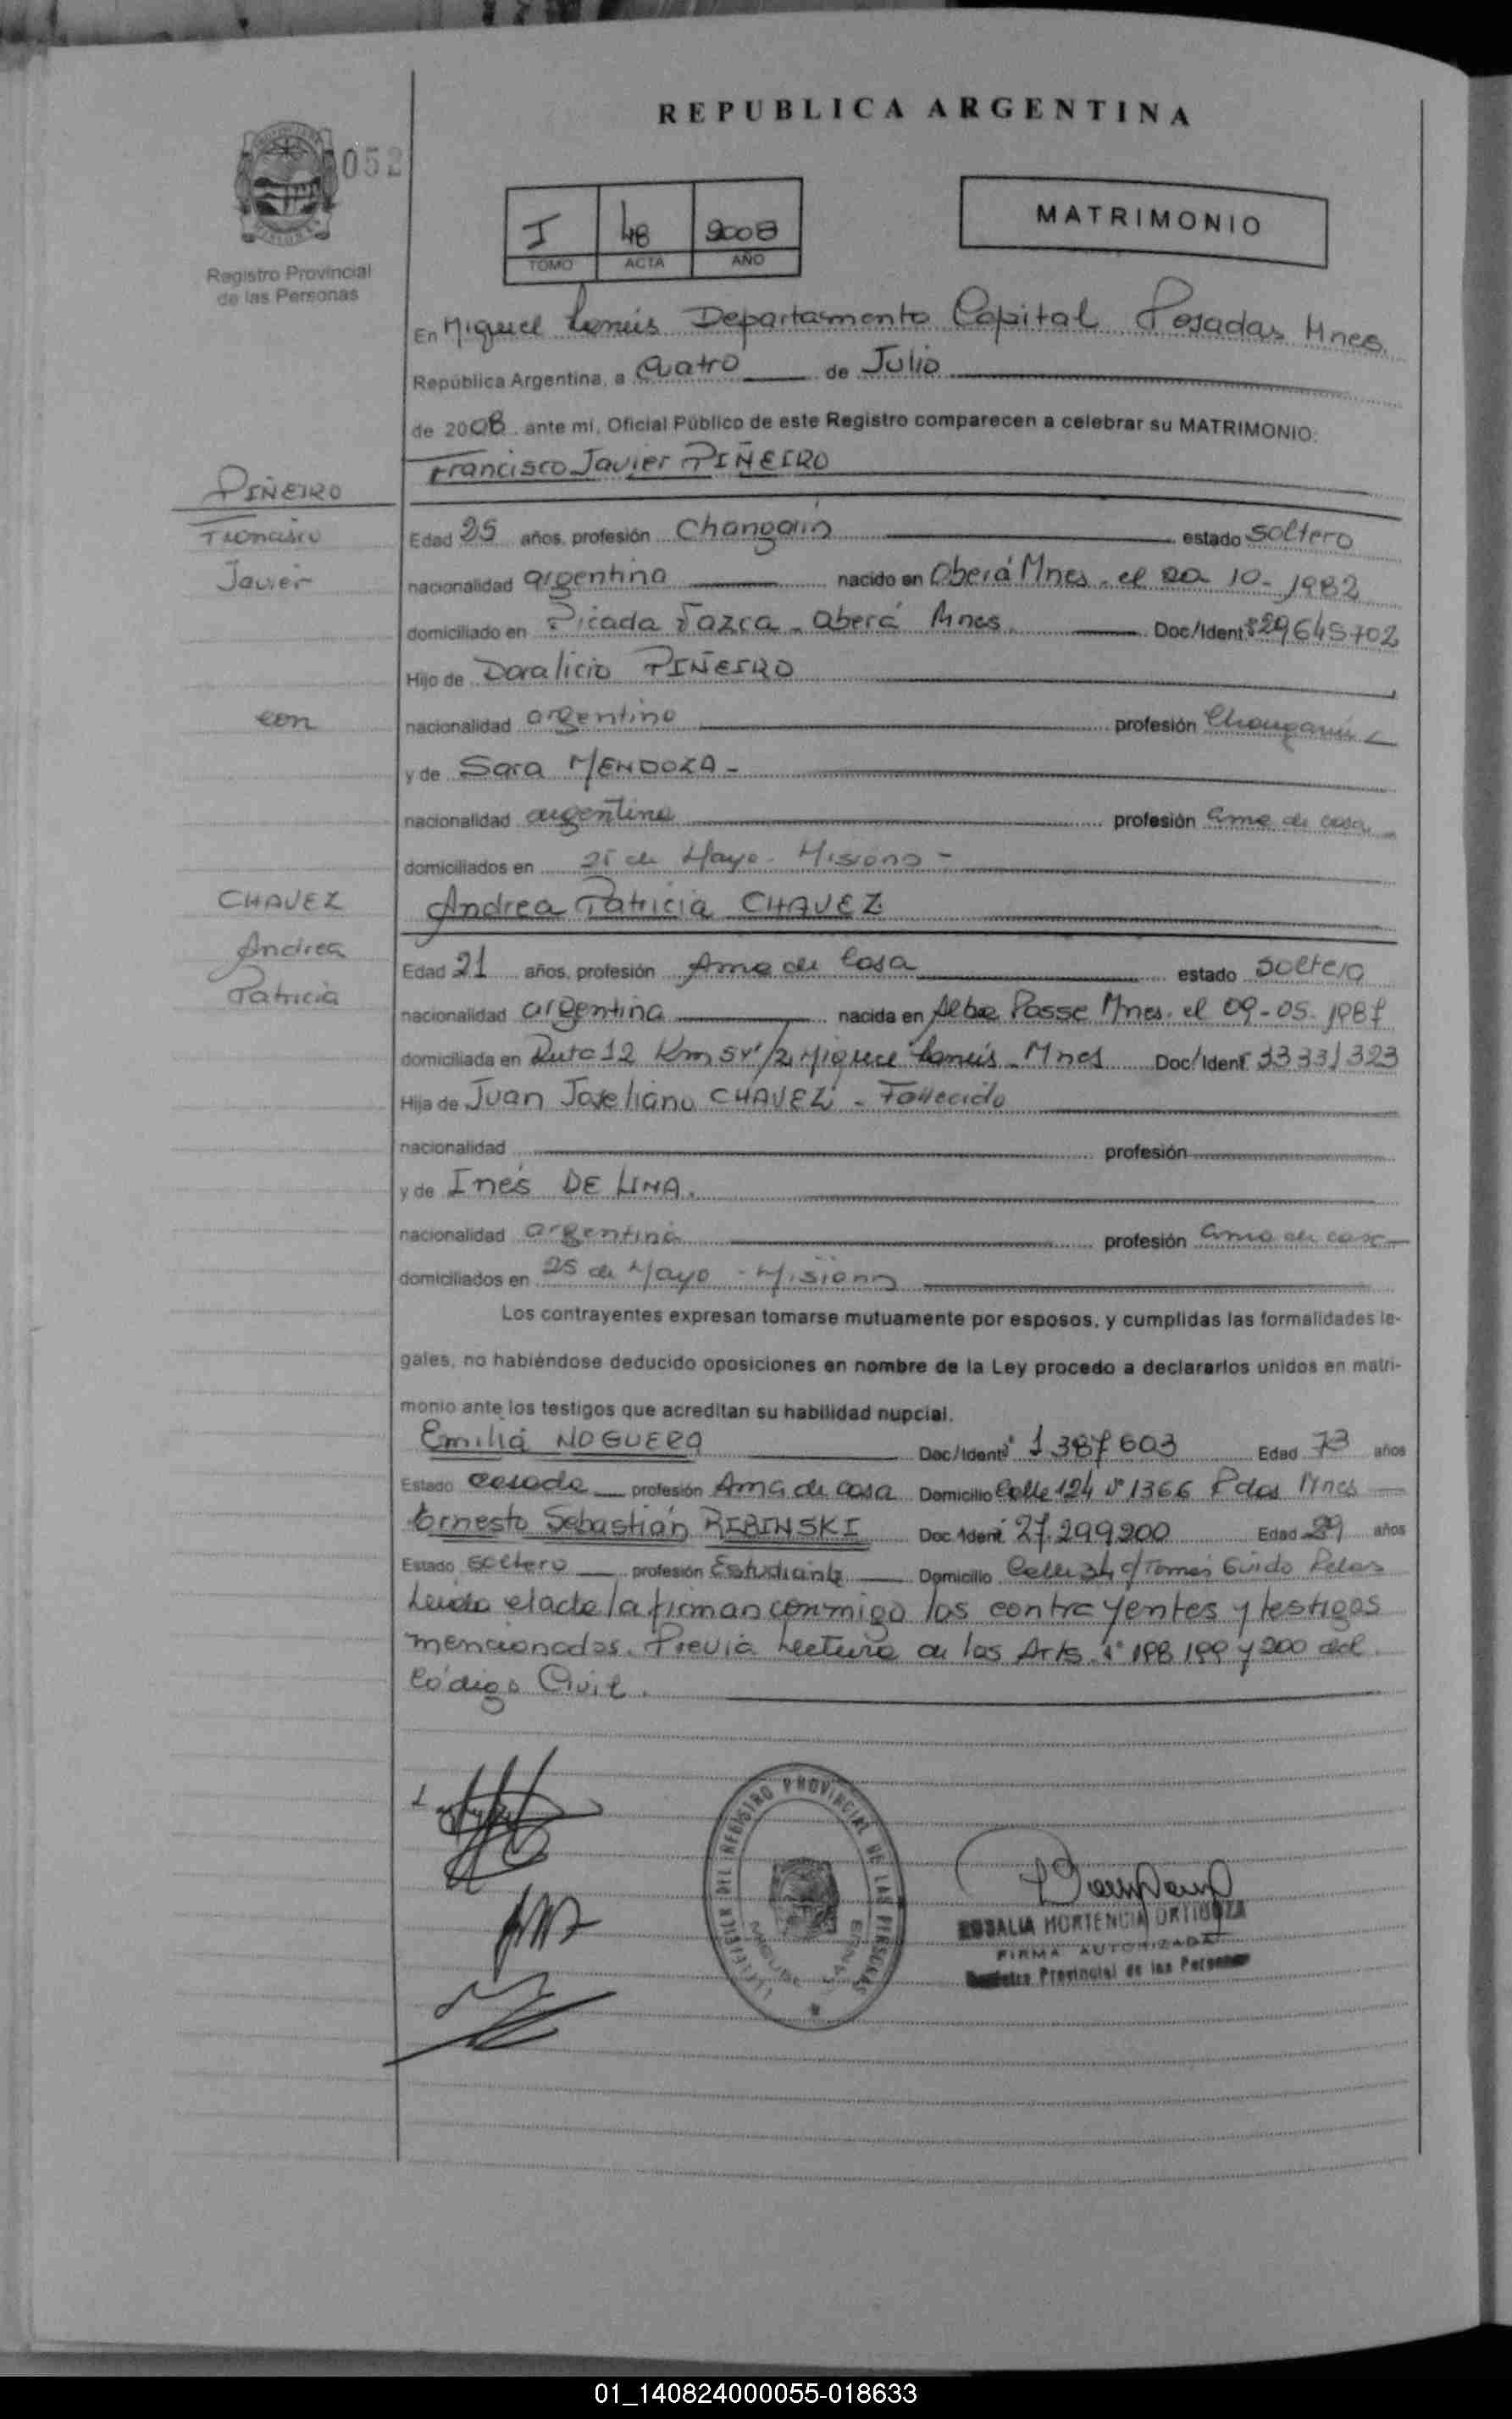 REPUBLICA ARGENTINA
052
I 48 2008
TOMO ACTA AÑO
MATRIMONIO
Registro Provincial
de las Personas
En Miguel Lanús Departamento Capital Posadas Mnes.
República Argentina, a Cuatro de Julio
de 2008 ante mí, Oficial Público de este Registro comparecen a celebrar su MATRIMONIO:
Francisco Javier PIÑEIRO
PIÑEIRO
Francisco
Javier
Edad 25 años, profesión Changarín estado Soltero
nacionalidad argentina nacido en Oberá Mnes. el 10- 1982
domiciliado en Picada Oberá Mnes. Doc/Ident 29645702
Hijo de Doralicio PIÑEIRO
con
nacionalidad argentino profesión Changarín
y de Sara MENDOZA -
nacionalidad argentina profesión ama de casa
domiciliados en 25 de Mayo - Misiones -
CHAVEZ
Andrea
Patricia
Andrea Patricia CHAVEZ
Edad 21 años, profesión Ama de Casa estado Soltera
nacionalidad argentina nacida en Alba Posse Mnes. el 09-05-1987
domiciliada en Ruta 12 Km Miguel Lanús - Mnes Doc/Ident 33331323
Hija de Juan CHAVEZ - Fallecido
nacionalidad profesión
y de Inés DE LIMA.
nacionalidad argentina profesión ama de casa
domiciliados en 25 de Mayo - Misiones
Los contrayentes expresan tomarse mutuamente por esposos, y cumplidas las formalidades le-
gales, no habiéndose deducido oposiciones en nombre de la Ley procedo a declararlos unidos en matri-
monio ante los testigos que acreditan su habilidad nupcial.
Emilia NOGUERA Doc/Ident 1387603 Edad 73 años
Estado casada profesión Ama de casa Domicilio Calle 124 Nº 1366 Pdas Mnes
Ernesto Sebastián RIBINSKI Doc/Ident 27.299200 Edad 29 años
Estado soltero profesión Estudiante Domicilio Calle 34 Tomás Guido Pdas
Leída el acta la firman conmigo los contrayentes y testigos
mencionados. Previa Lectura de los Arts. Nº 198 199 y 200 del
Código Civil.
DEL REGISTRO PROVINCIAL DE LAS PERSONAS
MIGUEL LANUS
ROSALIA HORTENCIA ORTIGOZA
FIRMA AUTORIZADA
Registro Provincial de las Personas
01_140824000055-018633